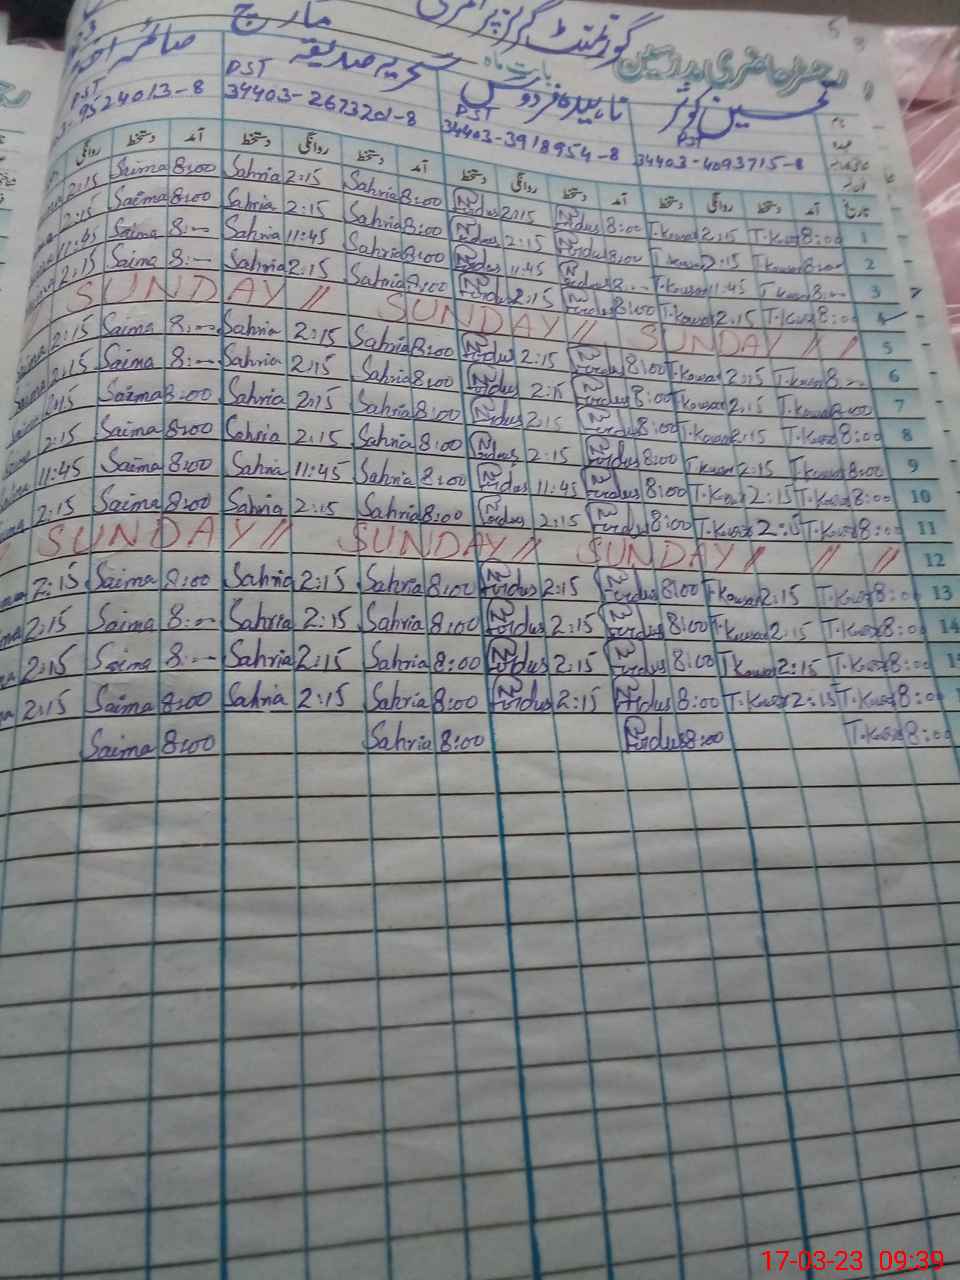 گورنمنٹ گرلز پرائمری
رجسٹر حاضری مدرسین بابت ماہ مارچ
تحسین کوثر ناہید فردوس سحریہ صدیقہ صائمہ
PST PST PST PST
34403-4093715-8 34403-3918954-8 34403-2673201-8 9524013-8
تاریخ آمد دستخط روانگی دستخط آمد دستخط روانگی دستخط آمد دستخط روانگی دستخط آمد دستخط روانگی
2:15 Saima 8:00 Sahria 2:15 Sahria 8:00 Firdus 2:15 Firdus 8:00 T.Kousar 2:15 T.Kousar 8:00 1
2:15 Saima 8:00 Sahria 2:15 Sahria 8:00 Firdus 2:15 Firdus 8:00 T.Kousar 2:15 T.Kousar 8:00 2
11:45 Saima 8:— Sahria 11:45 Sahria 8:00 Firdus 11:45 Firdus 8:— T.Kousar 11:45 T.Kousar 8:— 3
2:15 Saima 8:— Sahria 2:15 Sahria 8:00 Firdus 2:15 Firdus 8:00 T.Kousar 2:15 T.Kousar 8:00 4
SUNDAY // SUNDAY // SUNDAY // 5
2:15 Saima 8:— Sahria 2:15 Sahria 8:00 Firdus 2:15 Firdus 8:00 T.Kousar 2:15 T.Kousar 8:— 6
2:15 Saima 8:— Sahria 2:15 Sahria 8:00 Firdus 2:15 Firdus 8:00 T.Kousar 2:15 T.Kousar 8:00 7
2:15 Saima 8:00 Sahria 2:15 Sahria 8:00 Firdus 2:15 Firdus 8:00 T.Kousar 2:15 T.Kousar 8:00 8
2:15 Saima 8:00 Sahria 2:15 Sahria 8:00 Firdus 2:15 Firdus 8:00 T.Kousar 2:15 T.Kousar 8:00 9
11:45 Saima 8:00 Sahria 11:45 Sahria 8:00 Firdus 11:45 Firdus 8:00 T.Kousar 2:15 T.Kousar 8:00 10
2:15 Saima 8:00 Sahria 2:15 Sahria 8:00 Firdus 2:15 Firdus 8:00 T.Kousar 2:15 T.Kousar 8:00 11
SUNDAY // SUNDAY // SUNDAY // // // 12
2:15 Saima 8:00 Sahria 2:15 Sahria 8:00 Firdus 2:15 Firdus 8:00 T.Kousar 2:15 T.Kousar 8:00 13
2:15 Saima 8:— Sahria 2:15 Sahria 8:00 Firdus 2:15 Firdus 8:00 T.Kousar 2:15 T.Kousar 8:00 14
2:15 Saima 8:— Sahria 2:15 Sahria 8:00 Firdus 2:15 Firdus 8:00 T.Kousar 2:15 T.Kousar 8:00
2:15 Saima 8:00 Sahria 2:15 Sahria 8:00 Firdus 2:15 Firdus 8:00 T.Kousar 2:15 T.Kousar 8:00
Saima 8:00 Sahria 8:00 Firdus 8:00 T.Kousar 8:00
17-03-23 09:39